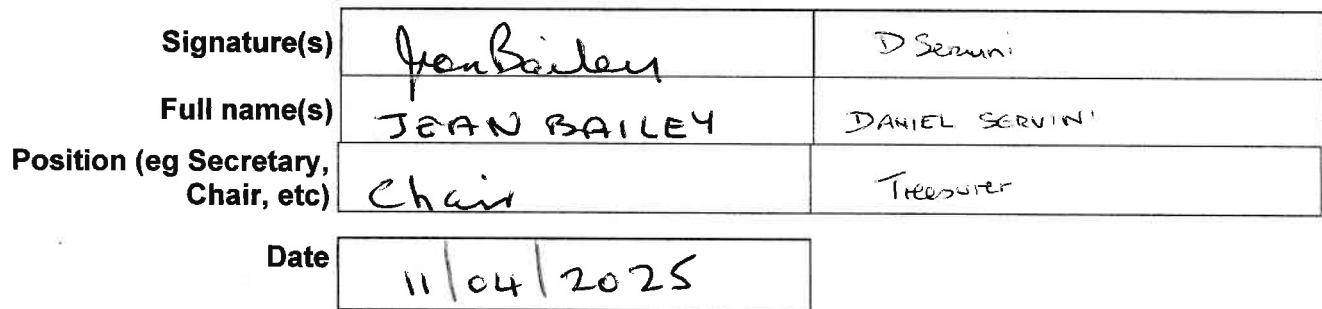 Signature(s) Jean Bailey D Servini
Full name(s) JEAN BAILEY DANIEL SERVINI
Position (eg Secretary,
Chair, etc) Chair Treasurer
Date 11/04/2025